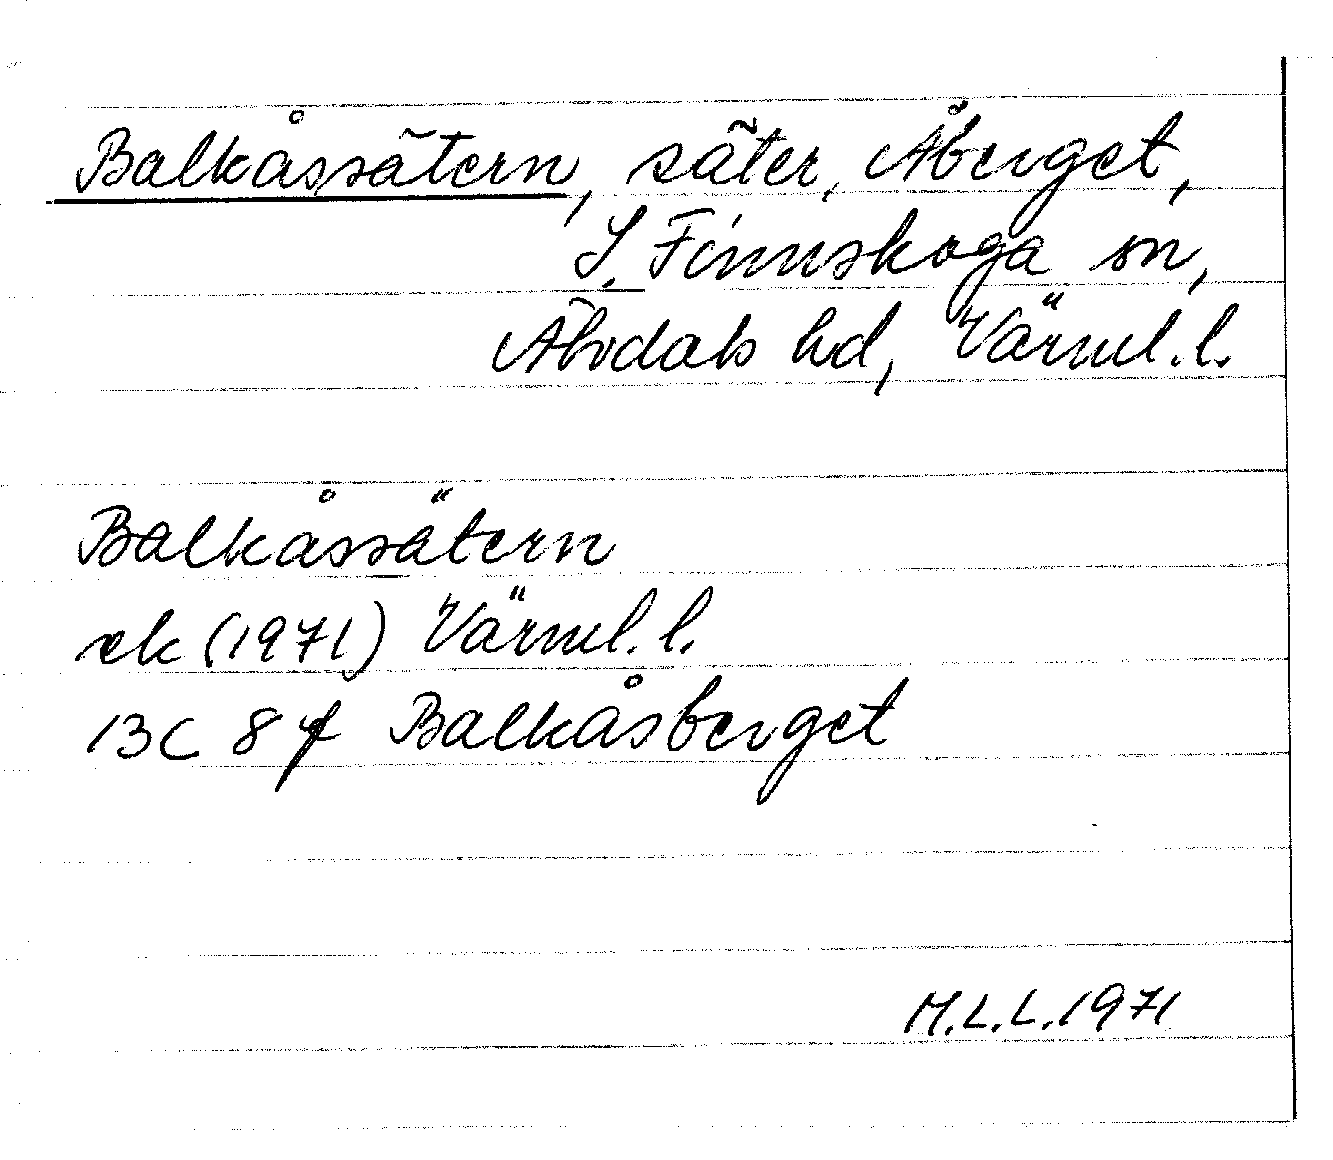 Balkåssätern, säter, Åberget,
S. Finnskoga sn,
Älvdals hd, Värml. l.
Balkåssätern
ek (1971) Värml. l.
13C 8f Balkåsberget
M.L.L. 1971